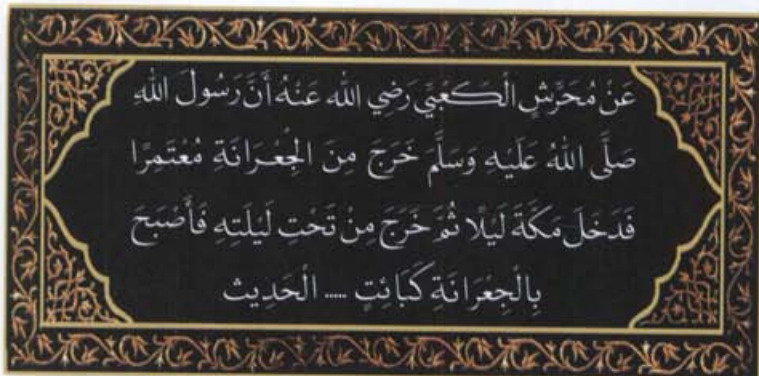 عَنْ مُحَرِّشٍ الْكَعْبِيِّ رَضِيَ اللهُ عَنْهُ أَنَّ رَسُولَ اللهِ
صَلَّى اللهُ عَلَيْهِ وَسَلَّمَ خَرَجَ مِنَ الْجِعْرَانَةِ مُعْتَمِرًا
فَدَخَلَ مَكَّةَ لَيْلًا ثُمَّ خَرَجَ مِنْ تَحْتِ لَيْلَتِهِ فَأَصْبَحَ
بِالْجِعْرَانَةِ كَبَائِتٍ ..... الْحَدِيث